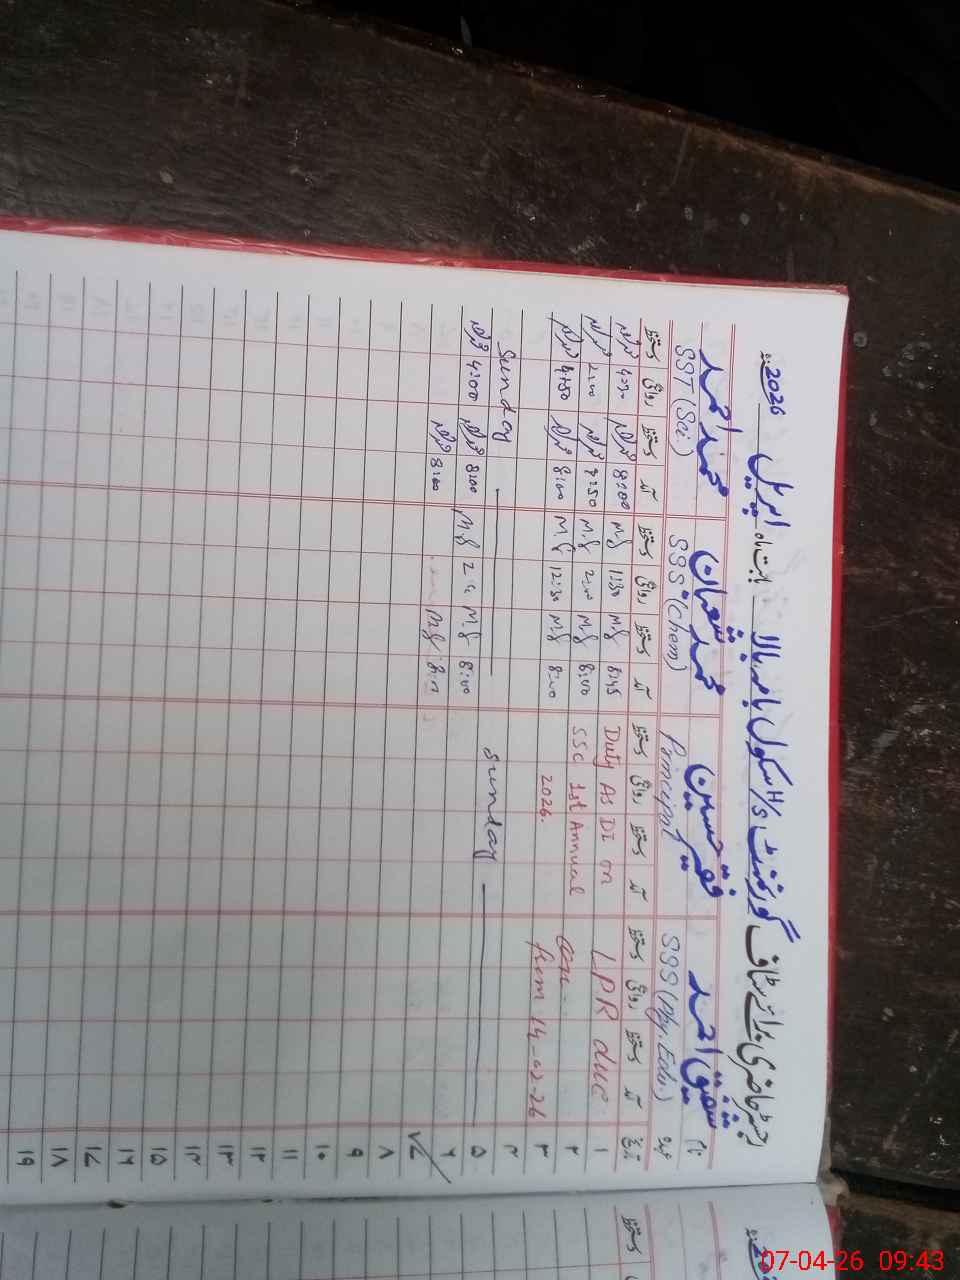 رجسٹر حاضری برائے سٹاف گورنمنٹ H/S سکول بامہ بالا بابت ماہ اپریل 2026ء
نام شفیق احمد فقیر حسین محمد شعبان محمد احمد
عہدہ SSS (Phy. Edu.) Principal SSS (Chem) SST (Sci.)
تاریخ آمد دستخط روانگی دستخط آمد دستخط روانگی دستخط آمد دستخط روانگی دستخط آمد دستخط روانگی دستخط
۱ LPR due Duty As DI on 8:45 M.S 1:30 M.S 8:00 4:30
۲ SSC 1st Annual 8:00 M.S 2:00 M.S 7:50 2:00
۳ from 14-02-26 2026. 8:00 M.S 12:30 M.S 8:00 4:30
۴
۵ Sunday Sunday
۶ 8:00 M.S M.S 8:00 4:00
۷ M.S 8:00
۸
۹
۱۰
۱۱
۱۲
۱۳
۱۴
۱۵
۱۶
۱۷
۱۸
۱۹
دستخط
07-04-26 09:43